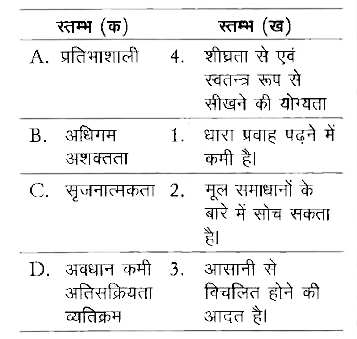 स्तम्भ (क) स्तम्भ (ख)
A. प्रतिभाशाली 4. शीघ्रता से एवं
स्वतन्त्र रूप से
सीखने की योग्यता
B. अधिगम 1. धारा प्रवाह पढ़ने में
अशक्तता कमी है।
C. सृजनात्मकता 2. मूल समाधानों के
बारे में सोच सकता
है।
D. अवधान कमी 3. आसानी से
अतिसक्रियता विचलित होने की
व्यतिक्रम आदत है।